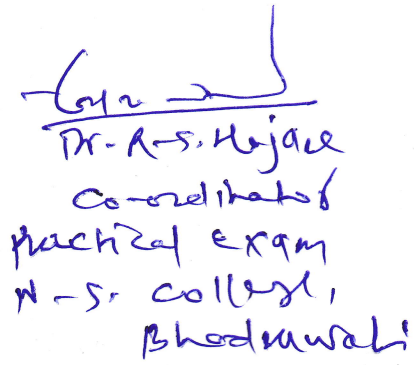 Dr. R. S. Hajare
Co-ordinator
Practical Exam
N. S. College,
Bhadrawati